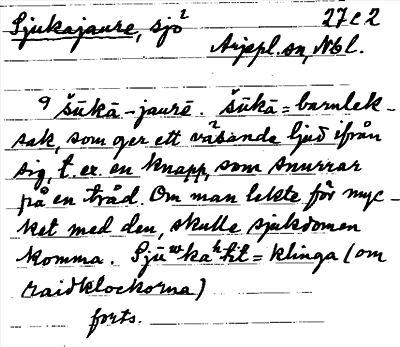 Sjukajaure, sjö² 27c2
Arjepl. sn, Nbl.
9 šūkā-jaurē. šūkā = barnlek-
sak, som ger ett väsande ljud ifrån
sig, t. ex. en knapp, som snurrar
på en tråd. Om man lekte för myc-
ket med den, skulle sjukdomen
komma. = klinga (om
raidklockorna)
forts.